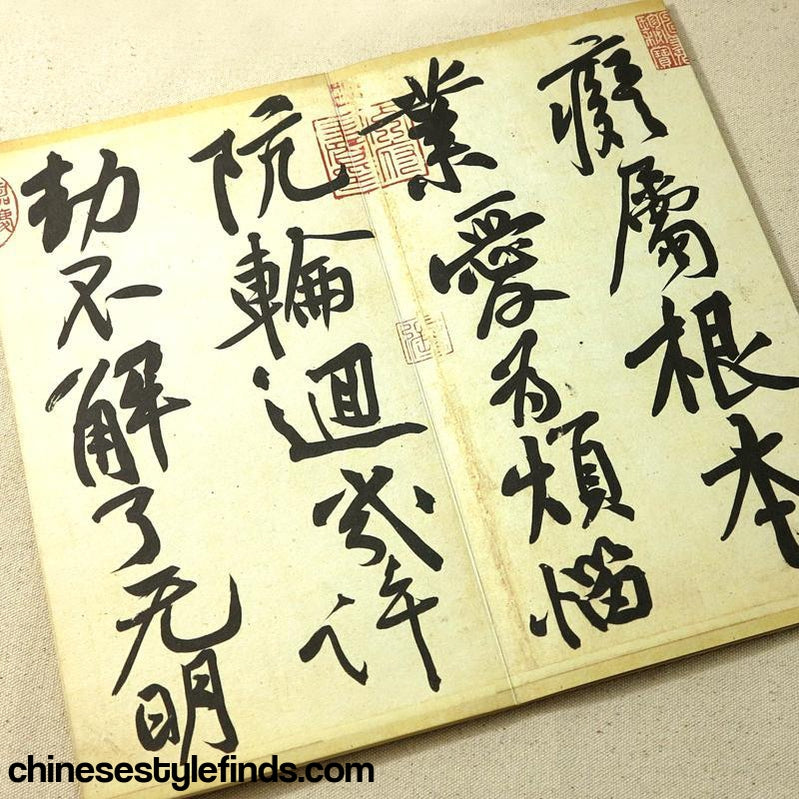 癡屬根本
業愛為煩惱
阬輪迴幾許
劫不解了无明
chinesestylefinds.com